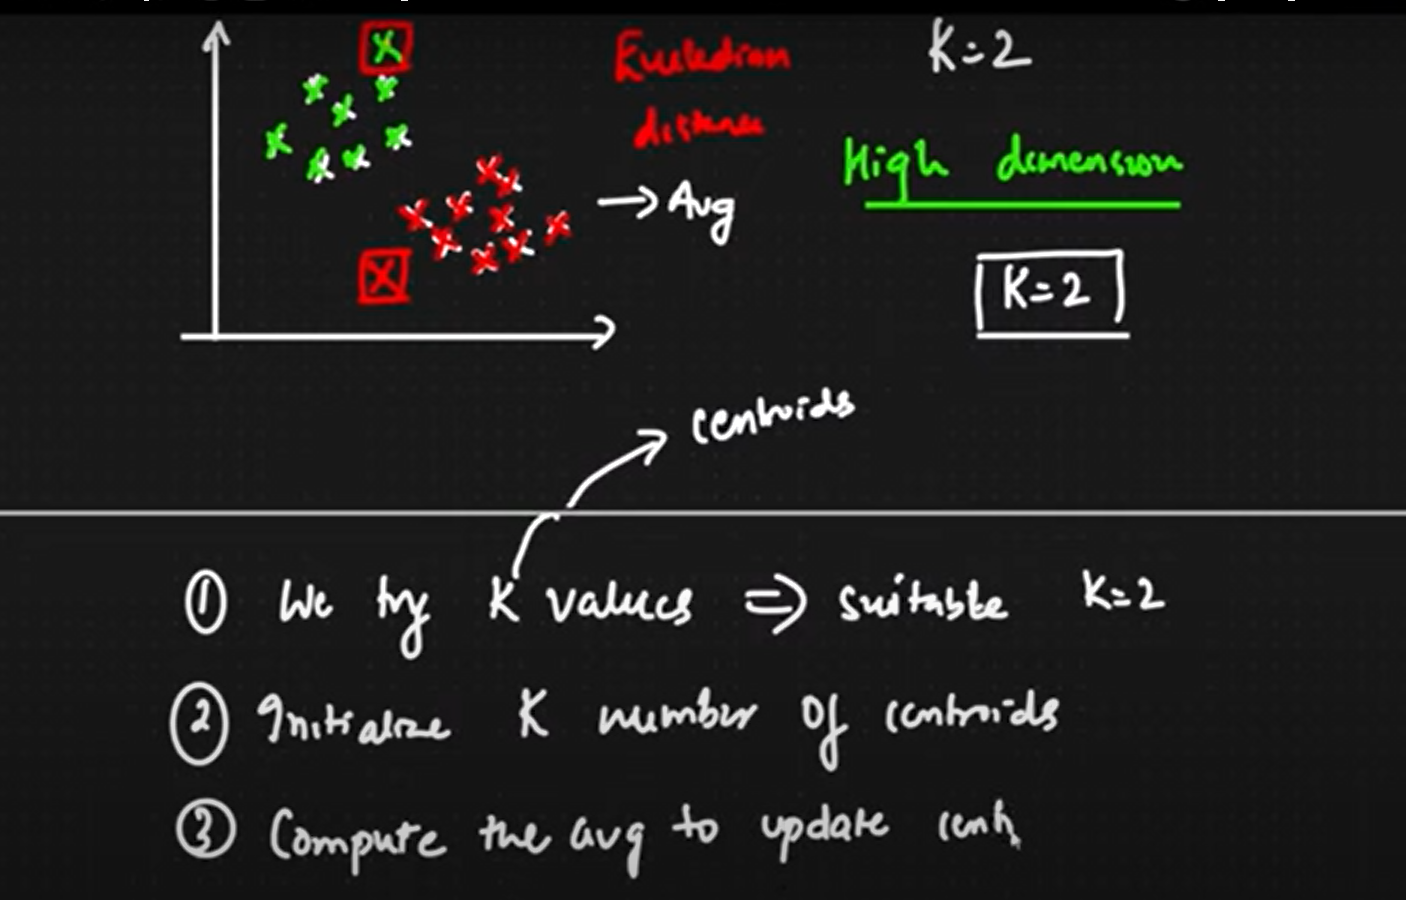 Eucledian K=2
distance
High dimension
→ Avg
K=2
centroids
① We try K values ⇒ suitable K=2
② Initialize K number of centroids
③ Compute the avg to update cent